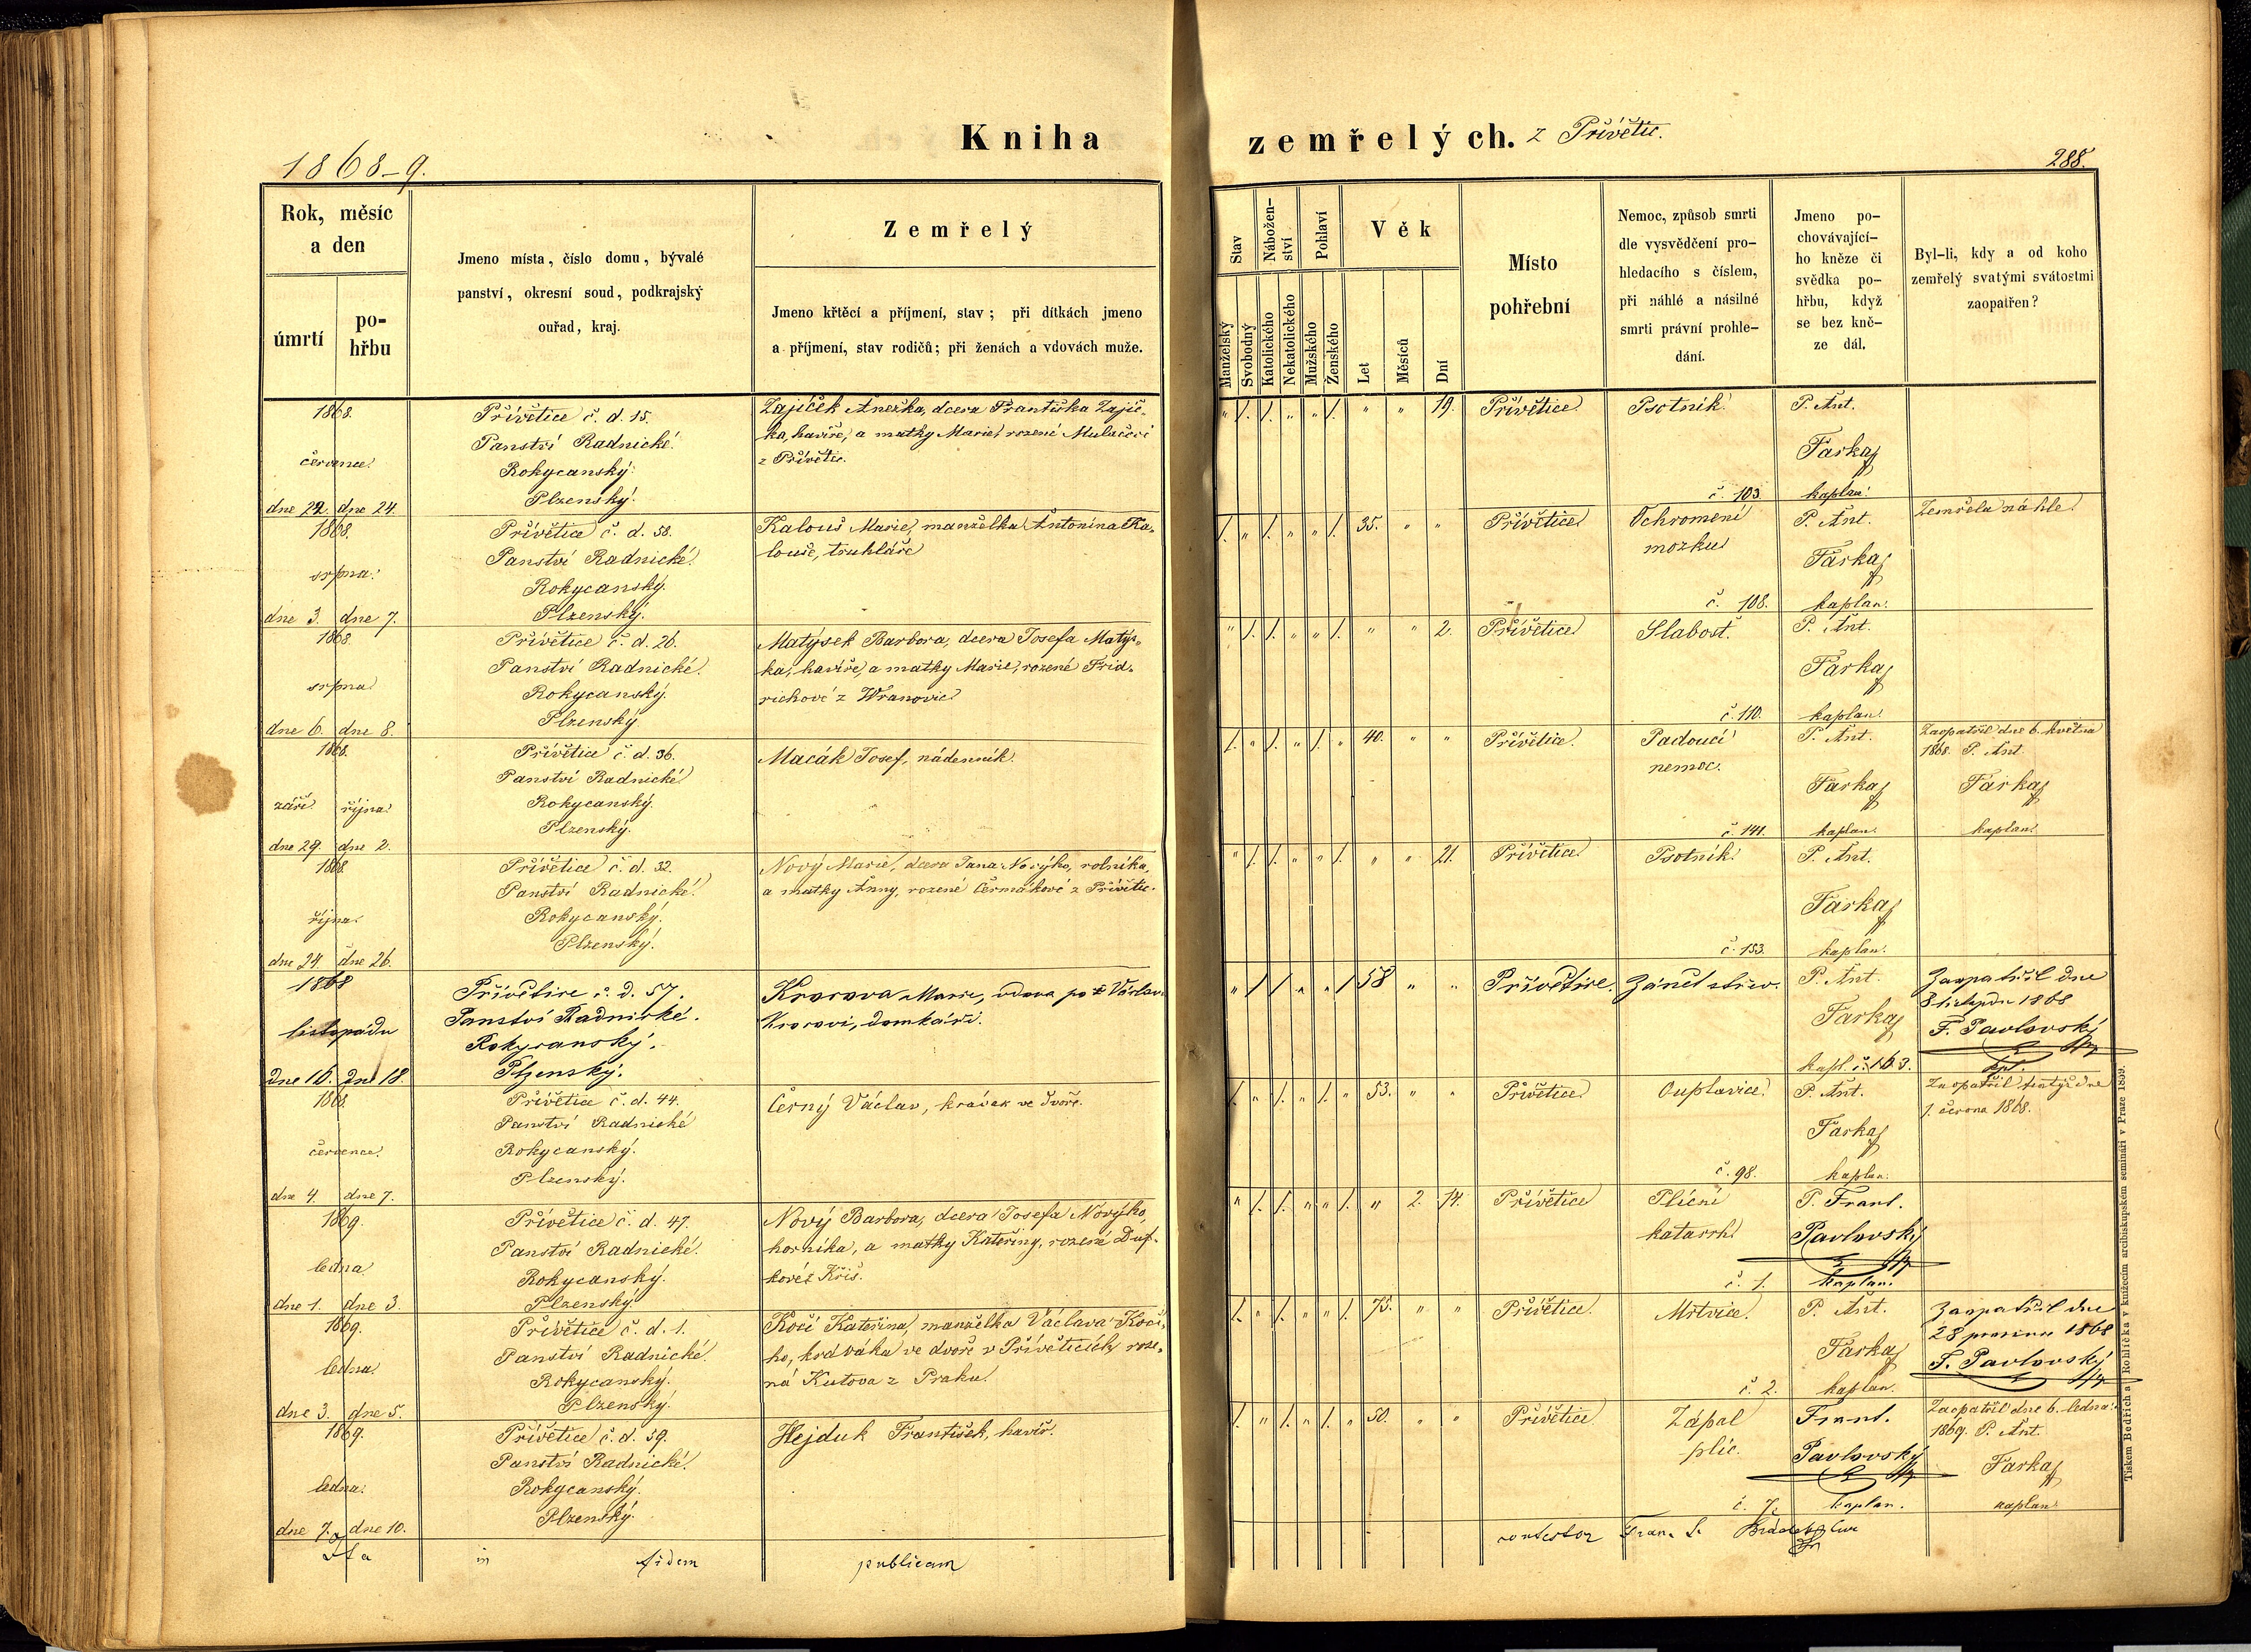 1868-9.
Kniha zemřelých. z Přívětic.
288.
Rok, měsíc
a den
úmrtí
po-
hřbu
Jmeno místa, číslo domu, bývalé
panství, okresní soud, podkrajský
ouřad, kraj.
Zemřelý
Jmeno křtěcí a příjmení, stav; při dítkách jmeno
a příjmení, stav rodičů; při ženách a vdovách muže.
Stav
Manželský
Svobodný
Nábožen-
ství
Katolického
Nekatolického
Pohlaví
Mužského
Ženského
Věk
Let
Měsíců
Dní
Místo
pohřební
Nemoc, způsob smrti
dle vysvědčení pro-
hledacího s číslem,
při náhlé a násilné
smrti právní prohle-
dání.
Jmeno po-
chovávající-
ho kněze či
svědka po-
hřbu, když
se bez kně-
ze dál.
Byl-li, kdy a od koho
zemřelý svatými svátostmi
zaopatřen?
1868.
července
dne 22. dne 24.
Přívětice č. d. 15.
Panství Radnické.
Rokycanský.
Plzenský.
Zajíček Anežka, dcera Františka Zajíč-
ka, havíře, a matky Marie, rozené
z Přívětic.
" /. /. " " /. " " 19.
Přívětice
Psotník.
č. 103.
P. Ant.
Farka
kaplan.
1868.
srpna.
dne 3. dne 7.
Přívětice č. d. 58.
Panství Radnické.
Rokycanský.
Plzenský.
Kalouš Marie, manželka Antonína Ka-
louše, truhláře
/. " /. " " /. 35. " "
Přívětice
Ochromení
mozku
č. 108.
P. Ant.
Farka
kaplan.
Zemřela náhle.
1868
srpna
dne 6. dne 8.
Přívětice č. d. 26.
Panství Radnické.
Rokycanský.
Plzenský.
Matýsek Barbora, dcera Josefa Matýs-
ka, havíře, a matky Marie, rozené Frid-
richové z Wranovic
" /. /. " " /. " " 2.
Přívětice
Slabost.
č. 110.
P. Ant.
Farka
kaplan.
1868.
září října
dne 29. dne 2.
Přívětice č. d. 36.
Panství Radnické
Rokycanský.
Plzenský.
Macák Josef, nádenník.
/. " /. " /. " 40. " "
Přívětice.
Padoucí
nemoc.
č. 141.
P. Ant.
Farka
kaplan.
Zaopatřil dne 6. května
1868. P. Ant.
Farka
kaplan.
1868
října.
dne 24. dne 26.
Přívětice č. d. 32.
Panství Radnické.
Rokycanský.
Plzenský.
Nový Marie, dcera Jana Nového, rolníka,
a matky Anny, rozené Čermákové z Přívětic.
" /. /. " " /. " " 21.
Přívětice
Psotník.
č. 153.
P. Ant.
Farka
kaplan.
1868
listopadu
dne 16. dne 18.
Přívětice č. d. 57.
Panství Radnické.
Rokycanský.
Plzenský.
Marie, vdova po
domkáři.
" / / " " / 58 " "
Přívětice.
Zánět střev.
P. Ant.
Farka
kapl. č. 163.
Zaopatřil dne
8 listopadu 1868
F. Pavlovský
kpl.
1868.
července.
dne 4. dne 7.
Přívětice č. d. 44.
Panství Radnické
Rokycanský.
Plzenský.
Černý Václav, kravák ve dvoře.
/. " /. " /. " 53. " "
Přívětice
Ouplavice
č. 98.
P. Ant.
Farka
kaplan.
Zaopatřil tentýž dne
1. června 1868.
1869.
ledna
dne 1. dne 3.
Přívětice č. d. 47.
Panství Radnické.
Rokycanský.
Plzenský.
Nový Barbora, dcera Josefa Nového,
horníka, a matky Kateřiny, rozené Duf-
kové z Kříš.
" /. /. " " /. " 2. 14.
Přívětice
Plícní
katarrh
č. 1.
P. Frant.
Pavlovský
kaplan.
1869.
ledna
dne 3. dne 5.
Přívětice č. d. 1.
Panství Radnické.
Rokycanský.
Plzenský.
Kočí Kateřina, manželka Václava Kočí-
ho, kraváka ve dvoře v Příveticích, roze-
ná Kutova z Praku.
/. " /. " " /. 75. " "
Přívětice.
Mrtvice.
č. 2.
P. Ant.
Farka
kaplan.
Zaopatřil dne
28 prosince 1868
F. Pavlovský
1869.
ledna.
dne 7. dne 10.
Přívětice č. d. 59.
Panství Radnické.
Rokycanský.
Plzenský.
Hejduk František, havíř.
/. " /. " /. " 50. " "
Přívětice
Zápal
plic.
č. 7.
Frant.
Pavlovský
kaplan.
Zaopatřil dne 6. ledna
1869. P. Ant.
Farka
kaplan.
Ita in fidem publicam contestor
Tiskem Bedřicha Rohlíčka v knížecím arcibiskupském semináři v Praze 1859.